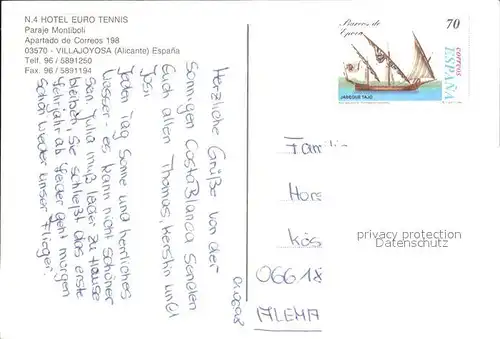 N.4 HOTEL EURO TENNIS
Paraje Montiboli
Apartado de Correos 198
03570 - VILLAJOYOSA (Alicante) España
Telf. 96 / 5891250
Fax. 96 / 5891194
Herzliche Grüße von der
sonnigen Costa Blanca senden
Euch allen Thomas, Kerstin und
Josi
Jeden Tag Sonne und herrliches
Wasser - es kann nicht schöner
sein. Julia muß leider zu Hause
bleiben. Sie schließt das erste
Lehrjahr ab. Leider geht morgen
schon wieder unser Flieger.
Barcos de
Epoca
70
correos
ESPAÑA
JABEQUE TAJO
Famili
Hors
Kös
06618
ALEMA
privacy protection
Datenschutz